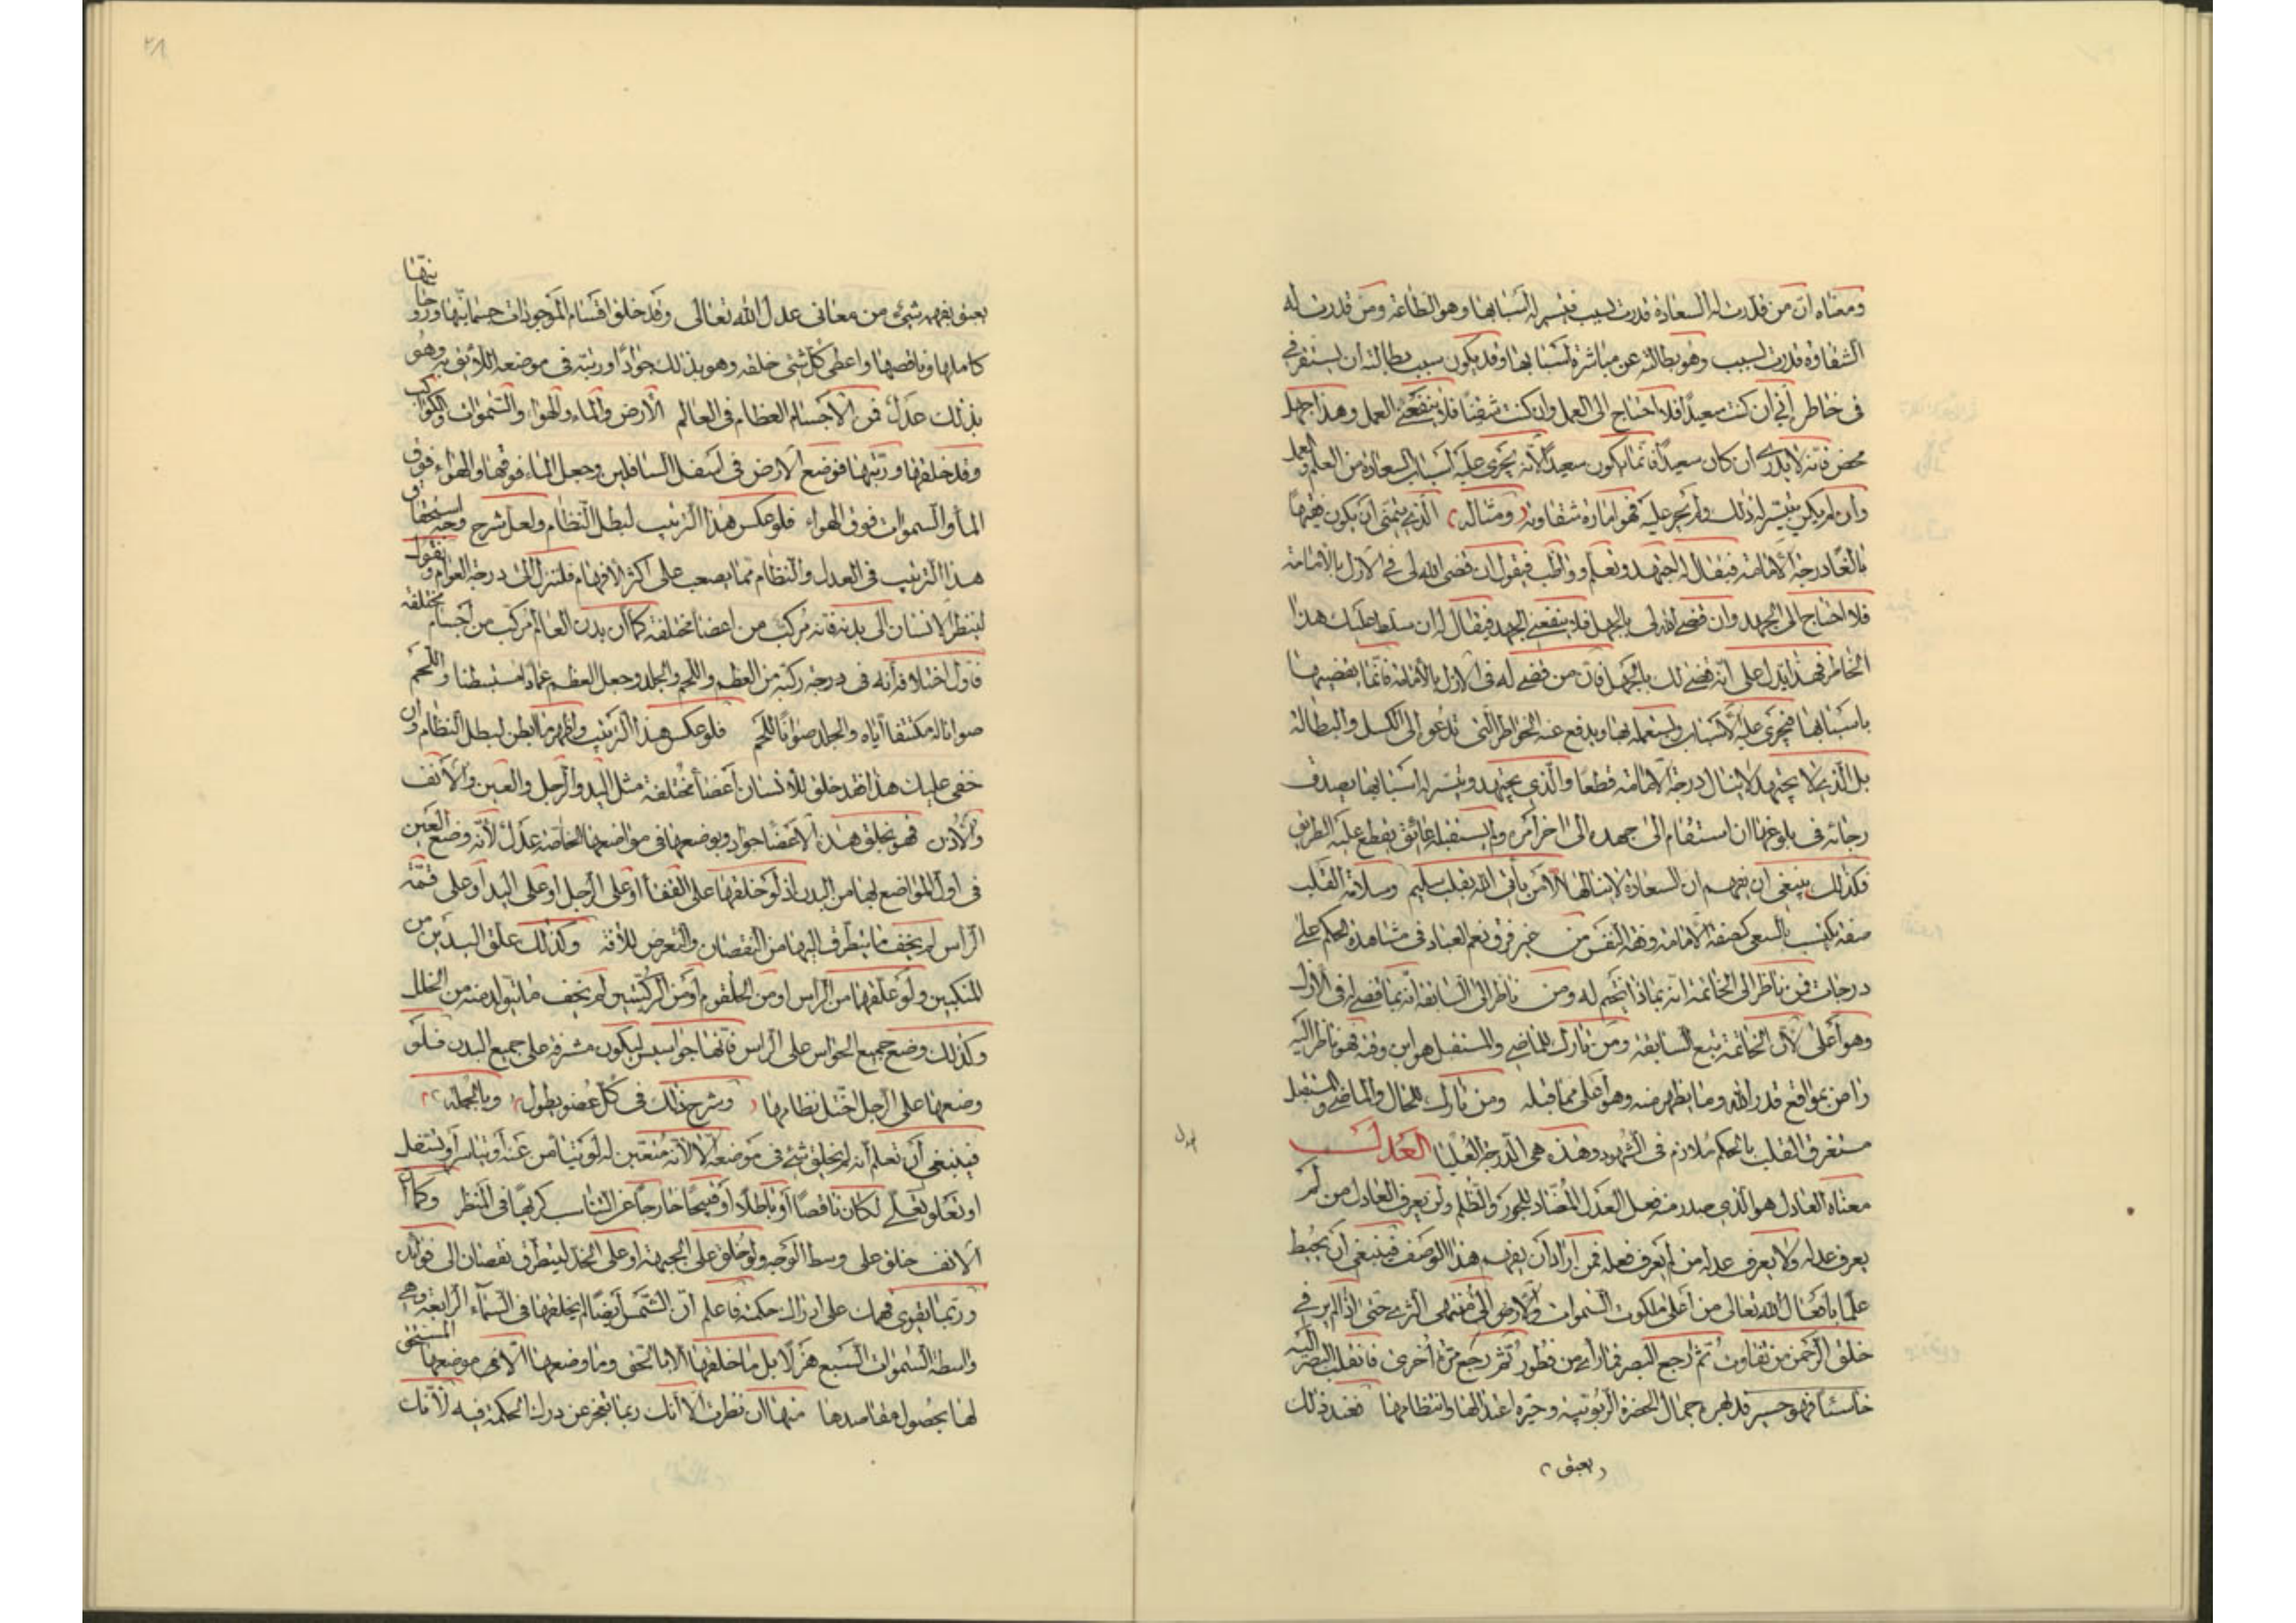 ومعناه ان من قدرت له السعادة قدرت لسبب فيتيسر له اسبابها وهو الطاعة ومن قدرت له
الشقاوة قدرت لسبب وهو بطالته عن مباشرة اسبابها وقد يكون سبب بطالته ان يستقر في
في خاطر إني ان كنت سعيدًا فلا احتاج الى العمل وان كنت شقيًا فلا ينفعني العمل وهذا جهل
محض فانه لا يدرى ان كان سعيدًا فانما يكون سعيدًا لأنه يجرى عليه اسباب السعادة من العلم والعمل
وان لم يكن يتيسر له ذلك ولم يجر عليه فهو امارة شقاوته (ومثاله) الذي يتمنى أن يكون فقيهًا
بالغًا درجة الامامة فيقال له اجتهد وتعلم وواظب فيقول ان قضى الله لى في الازل بالامامة
فلا احتاج الى الجهد وان قضى الله لى بالجهل فلا ينفعني الجهد فيقال له ان سلط عليك هذا
الخاطر فهذا يدل على انه قضى لك بالجهل فان من قضى له في الازل بالأمامة فانما يقضيها
باسبابها فيجرى عليه الأسباب ويستعمله بها ويدفع عنه الخواطر التى تدعو الى الكسل والبطالة
بل الذي لا يجتهد لا ينال درجة الامامة قطعًا والذي يجتهد ويتيسر له اسبابها يصدق
رجائه في بلوغها ان استقام الى جهده الى اخر أمره ولم يستقبله عائق يقطع عليه الطريق
فكذلك ينبغى ان يفهم ان السعادة لا ينالها الا من يأتى الله بقلب سليم وسلامة القلب
صفة تكتسب بالسعى كصفة الامامة وفقه النفس من غير فرق نعم العباد في مشاهدة الحكم على
درجات فمن ناظر الى الخاتمة انه بماذا يختم له ومن ناظر الى السابقة انه بما قضى له في الازل
وهو أعلى لأن الخاتمة تبع السابقة ومن تارك للماضى والمستقبل هو ابن وقته فهو ناظر اليه
راض بمواقع قدر الله وما يظهر منه وهو أعلى مما قبله ومن تارك للحال والماضى والمستقبل
مستغرق القلب بالحكم ملازم في الشهود وهذه هى الدرجة العليا العدل
معناه العادل هو الذي صدر منه فعل العدل المضاد للجور والظلم ولن يعرف العادل من لم
يعرف عدله ولا يعرف عدله من لم يعرف فعله فمن أراد أن يفهم هذا الوصف فينبغى أن يحيط
علمًا بأفعال الله تعالى من أعلى ملكوت السموات والارض الى منتهى الثرى حتى اذا لم ير في
خلق الرحمن من تفاوت ثم ارجع البصر فما رأى من فطور ثم رجع مرة أخرى فانقلب اليه البصر
خاسئًا فهو حسير قد بهره جمال الحضرة الربوبية وحيره اعتدالها وانتظامها فعند ذلك
(يعبق)
عدل
٢٨
يعبق بفهمه شيئ من معانى عدل الله تعالى وقد خلق اقسام الموجودات جسمانيها وروحانيها
كاملها وناقصها واعطى كل شئ خلقه وهو بذلك جوادًا ورتبه في موضعه اللائق به وهو
بذلك عدل فمن الأجسام العظام في العالم الأرض والماء والهواء والسموات والكواكب
وقد خلقها ورتبها فوضع الارض في أسفل السافلين وجعل الماء فوقها والهواء فوق
الماء والسموات فوق الهواء فلو عكس هذا الترتيب لبطل النظام ولعل شرح وجه استحقاق
هذا الترتيب في العدل والنظام مما يصعب على اكثر الأفهام فلننزل الى درجة العوام ونقول
لينظر الانسان الى بدنه فانه مركب من اعضاء مختلفة كما أن بدن العالم مركب من اجسام مختلفة
فاول اختلافه أنه في درجة ركبه من العظم واللحم والجلد وجعل العظم عمادًا مستبطنا واللحم
صوانا له مكتنفا اياه والجلد صوانًا للحم فلو عكس هذا الترتيب واظهر ما أبطن لبطل النظام وان
خفى عليك هذا فقد خلق للانسان أعضاء مختلفة مثل اليد والرجل والعين والأنف
والأذن فهو بخلق هذه الأعضاء جواد وبوضعها في مواضعها الخاصة عدل لأنه وضع العين
في اولى المواضع بها من البدن اذ لو خلقها على القفا أو على الرجل او على اليد أو على قمة
الرأس لم يخف ما يتطرق اليها من النقصان والتعرض للآفة وكذلك علق اليدين من
المنكبين ولو علقهما من الراس او من الحلقوم أو من الركبتين لم يخف ما يتولد منه من الخلل
وكذلك وضع جميع الحواس على الراس فانها جواسيس ليكون مشرفة على جميع البدن فلو
وضعها على الرجل اختل نظامها (وشرح ذلك في كل عضو يطول) وبالجملة
فينبغى أن تعلم انه لم يخلق شئ في موضعه إلا لأنه متعين له لو تيامن عنه أو تياسر أو تسفل
او تعلو لكان ناقصًا أو باطلًا أو قبيحًا خارجًا عن التناسب كريهًا في المنظر وكما أن
الانف خلق على وسط الوجه ولو خلق على الجبهة او على الخد لتطرق نقصان الى فوائده
وربما يقوى فهمك على ادراك حكمته فاعلم ان الشمس أيضًا لم يخلقها في السماء الرابعة وهى
واسطة السموات السبع هزلًا بل ما خلقها الا بالحق وما وضعها الا في موضعها المستحق
لها بحصول مقاصدها منها ان نظرت الا أنك ربما تعجز عن درك الحكمة فيه لأنك